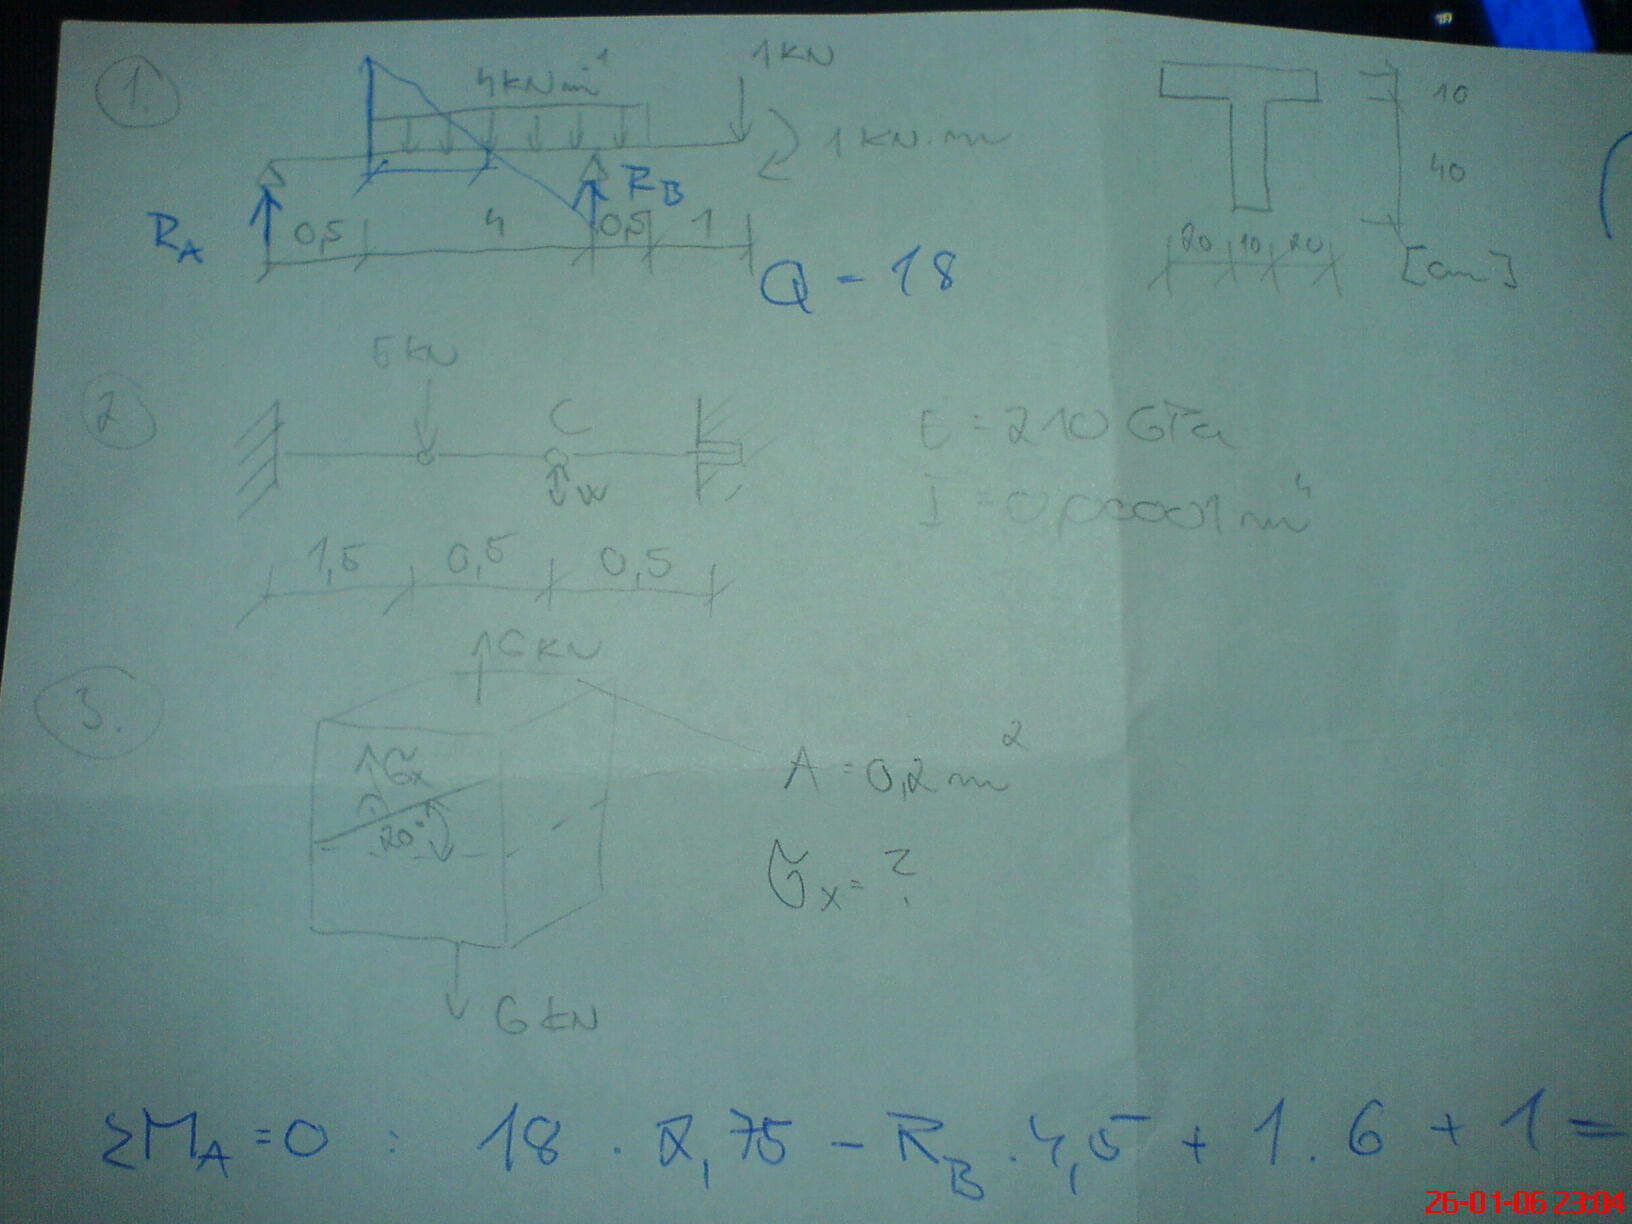 1.
4 kNm⁻¹
1 kN
1 kN.m
R_A
R_B
0,5 4 0,5 1
Q = 18
10
40
20 10 20
[cm]
2.
5 kN
C
w
E = 210 GPa
I = 0,00001 m⁴
1,5 0,5 0,5
3.
6 kN
σx
20°
A = 0,2 m²
σx = ?
6 kN
ΣM_A = 0 : 18 . 2,75 - R_B . 4,5 + 1 . 6 + 1 =
26-01-06 23:04